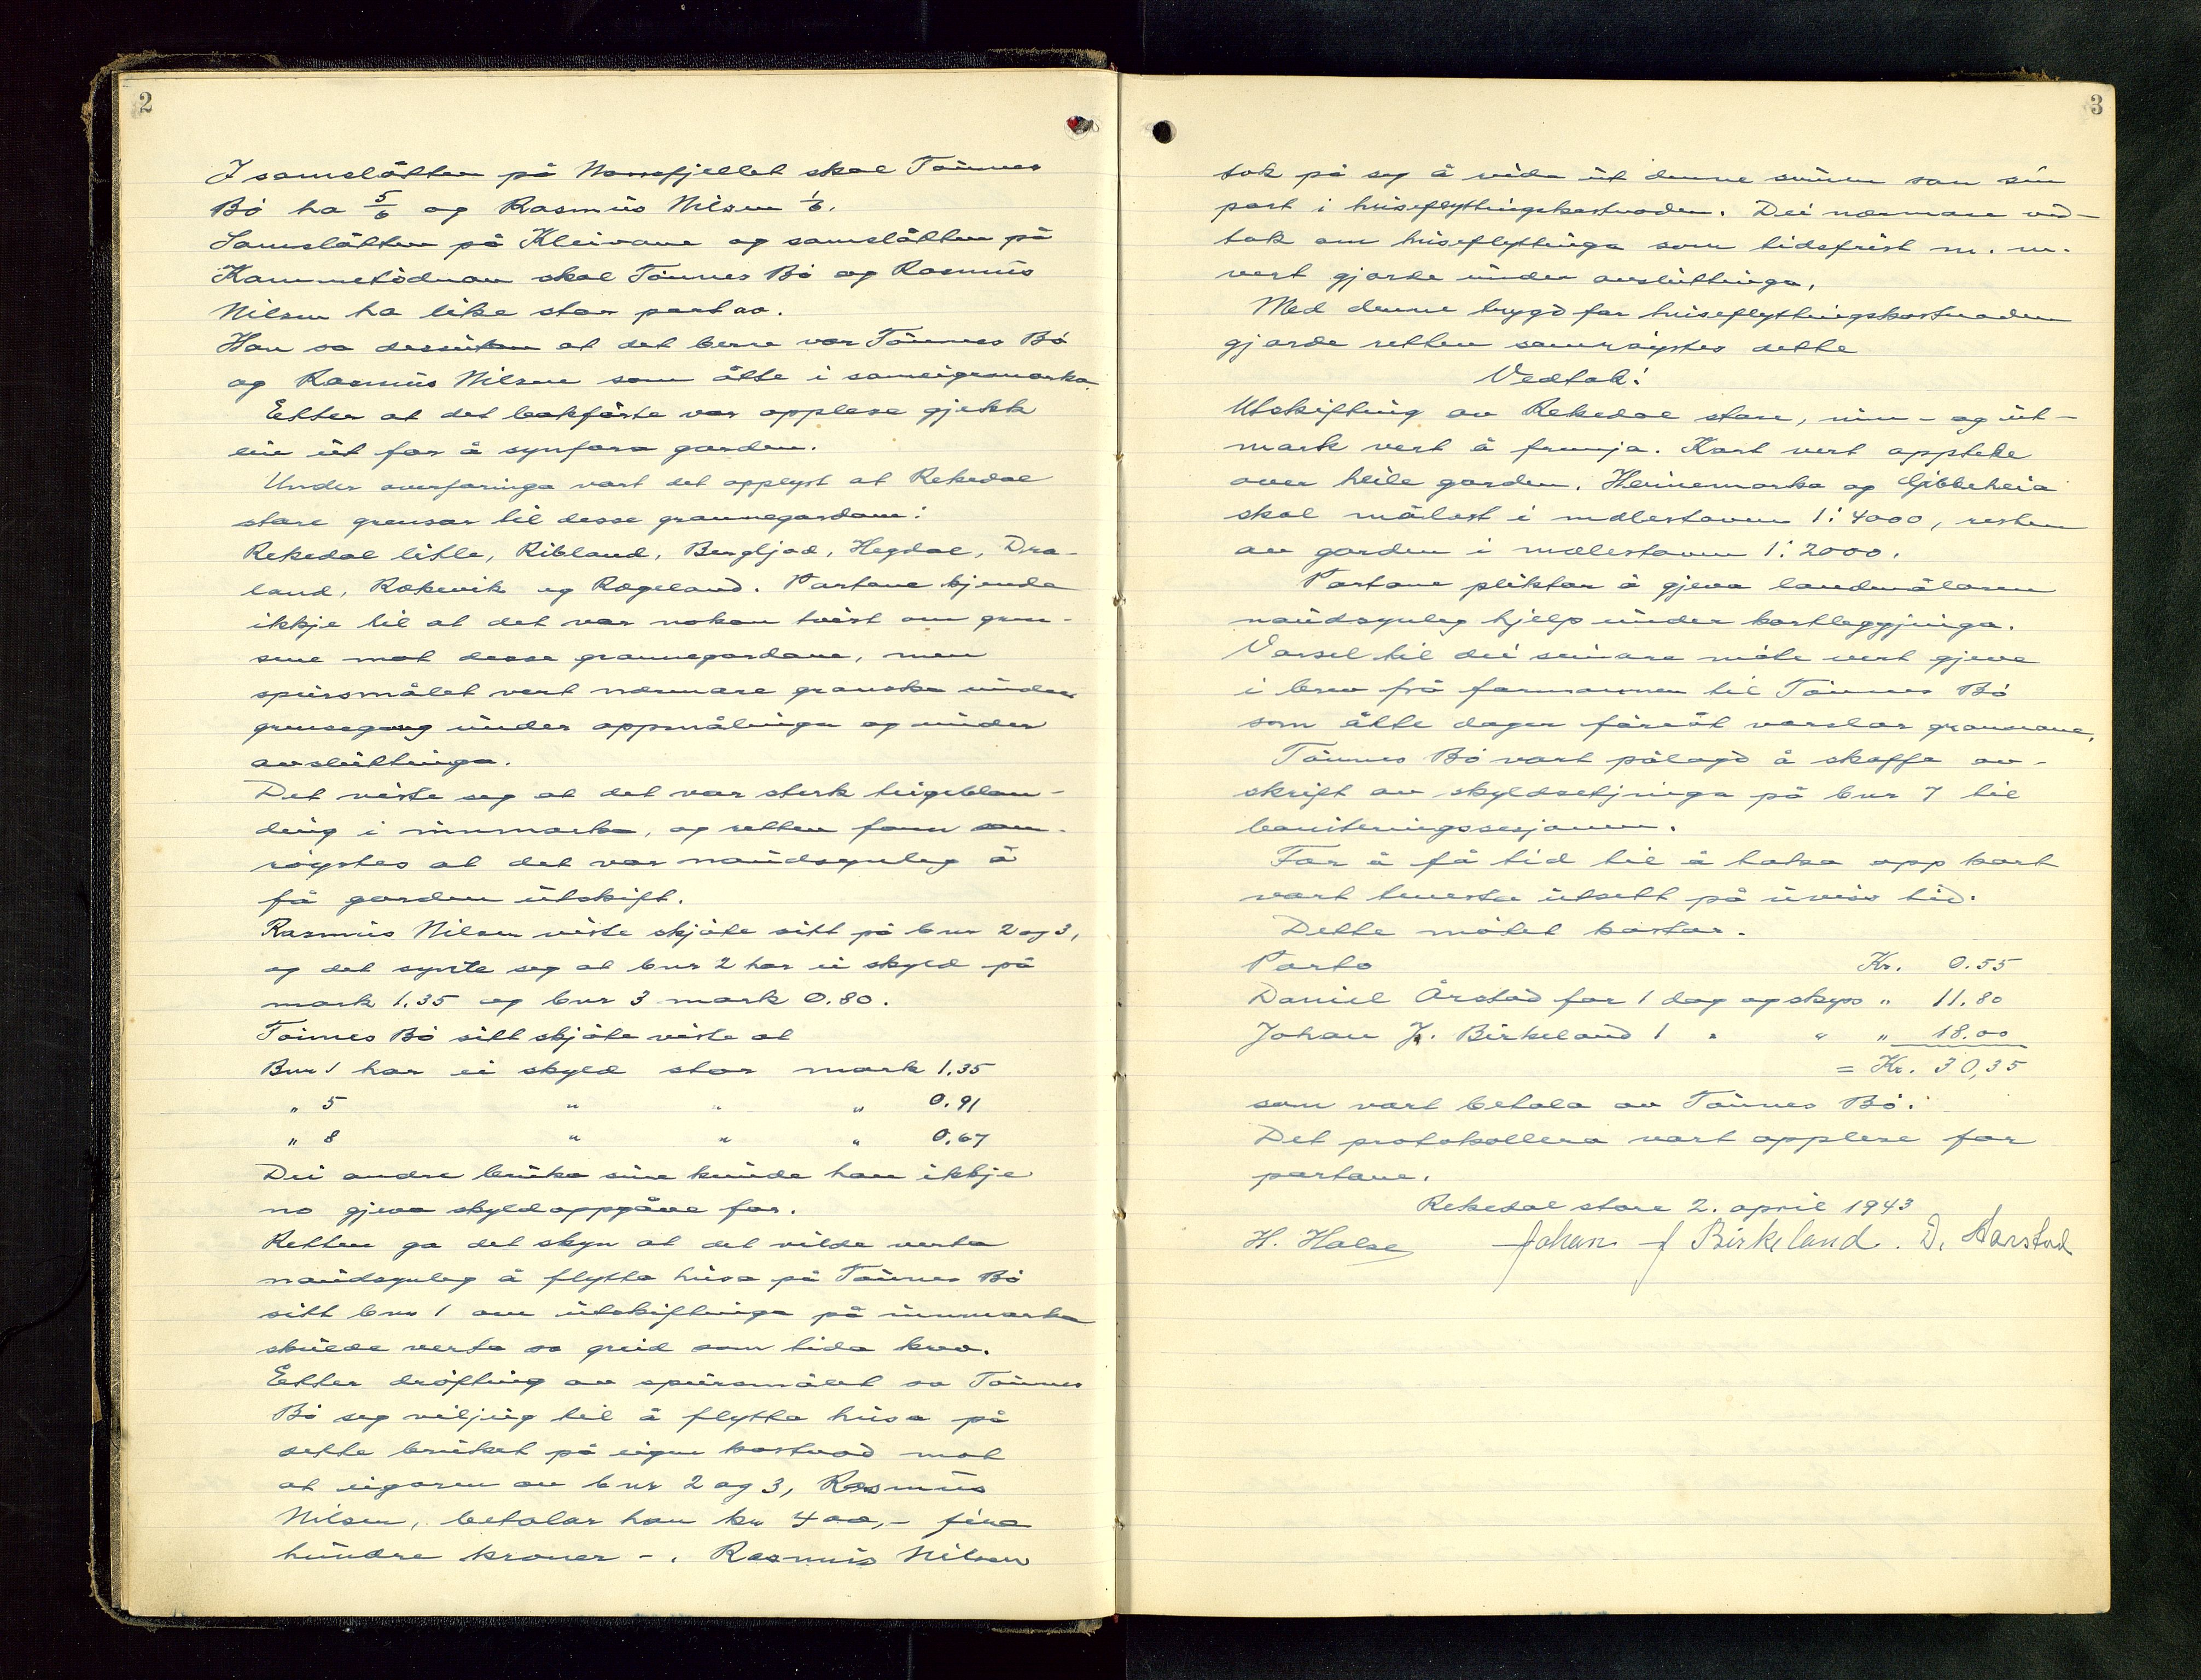 2
I samslåtten på Noresfjellet skal Tönnes
Bö ha 5/6 og Rasmus Nilsen 1/6.
Samslåtten på Kleivane og samslåtten på
skal Tönnes Bö og Rasmus
Nilsen ha like stor part av.
Han sa dessutan at det berre var Tönnes Bö
og Rasmus Nilsen som åtte i sameigemarka.
Etter at det bokförte var opplese gjekk
ein ut for å synfara garden.
Under overfaringa vart det opplyst at Rekedal
store grensar til desse grannegardane:
Rekedal litle, Ribland, Bergljod, Hegdal, Dra-
land, Rökevik og Rögeland. Partane kjende
ikkje til at det var nokon tvist om gren-
sene mot desse grannegardane, men
spursmålet vert nærmare granska under
grensegang under oppmålinga og under
avsluttinga.
Det viste seg at det var sterk teigeblan-
ding i innmarka, og retten fann sam-
röystes at det var naudsynleg å
få garden utskift.
Rasmus Nilsen viste skjöte sitt på bnr 2 og 3,
og det synte seg at bnr 2 har ei skyld på
mark 1.35 og bnr 3 mark 0.80.
Tönnes Bö sitt skjöte viste at
Bnr 1 har ei skyld stor mark 1.35
" 5 " " " 0.91
" 8 " " " 0.67
Dei andre bruka sine kunde han ikkje
no gjeva skyldoppgåve for.
Retten ga det skyn at det vilde verta
naudsynleg å flytta husa på Tönnes Bö
sitt bnr 1 om utskiftinga på innmarka
skulde verta so greid som tida krev.
Etter dröfting av spursmålet sa Tönnes
Bö seg viljug til å flytta husa på
dette bruket på eigen kostnad mot
at eigaren av bnr 2 og 3, Rasmus
Nilsen, betalar han kr 400,- fire
hundre kroner -. Rasmus Nilsen
3
tok på seg å reida ut denne summen som sin
part i huseflyttingskostnaden. Dei nærmare ved-
tak om huseflyttinga som tidsfrist m. m.
vert gjorde under avsluttinga.
Med denne trygd for huseflyttingskostnaden
gjorde retten samröystes dette
Vedtak:
Utskifting av Rekedal store, inn- og ut-
mark vert å fremja. Kart vert oppteke
over heile garden. Heimemarka og Gibbeheia
skal målast i målestaven 1:4000, resten
av garden i målestaven 1:2000.
Partane pliktar å gjeva landmålaren
naudsynleg hjelp under kartleggjinga.
Varsel til dei seinare möte vert gjeve
i brev frå formannen til Tönnes Bö
som åtte dagar föreåt varslar grannane.
Tönnes Bö vart pålagd å skaffe av-
skrift av skyldsetjinga på bnr 7 til
boniteringssesjonen.
For å få tid til å taka opp kart
vart tenesta utsett på uviss tid.
Dette mötet kostar.
Porto Kr. 0.55
Daniel Årstad for 1 dag og skyss " 11.80
Johan J. Birkeland 1 " " " 18.00
= Kr. 30,35
som vart betala av Tönnes Bö.
Det protokollera vart opplese for
partane.
Rekedal store 2. april 1943
H. Halse Johan J Birkeland. D. Aarstad